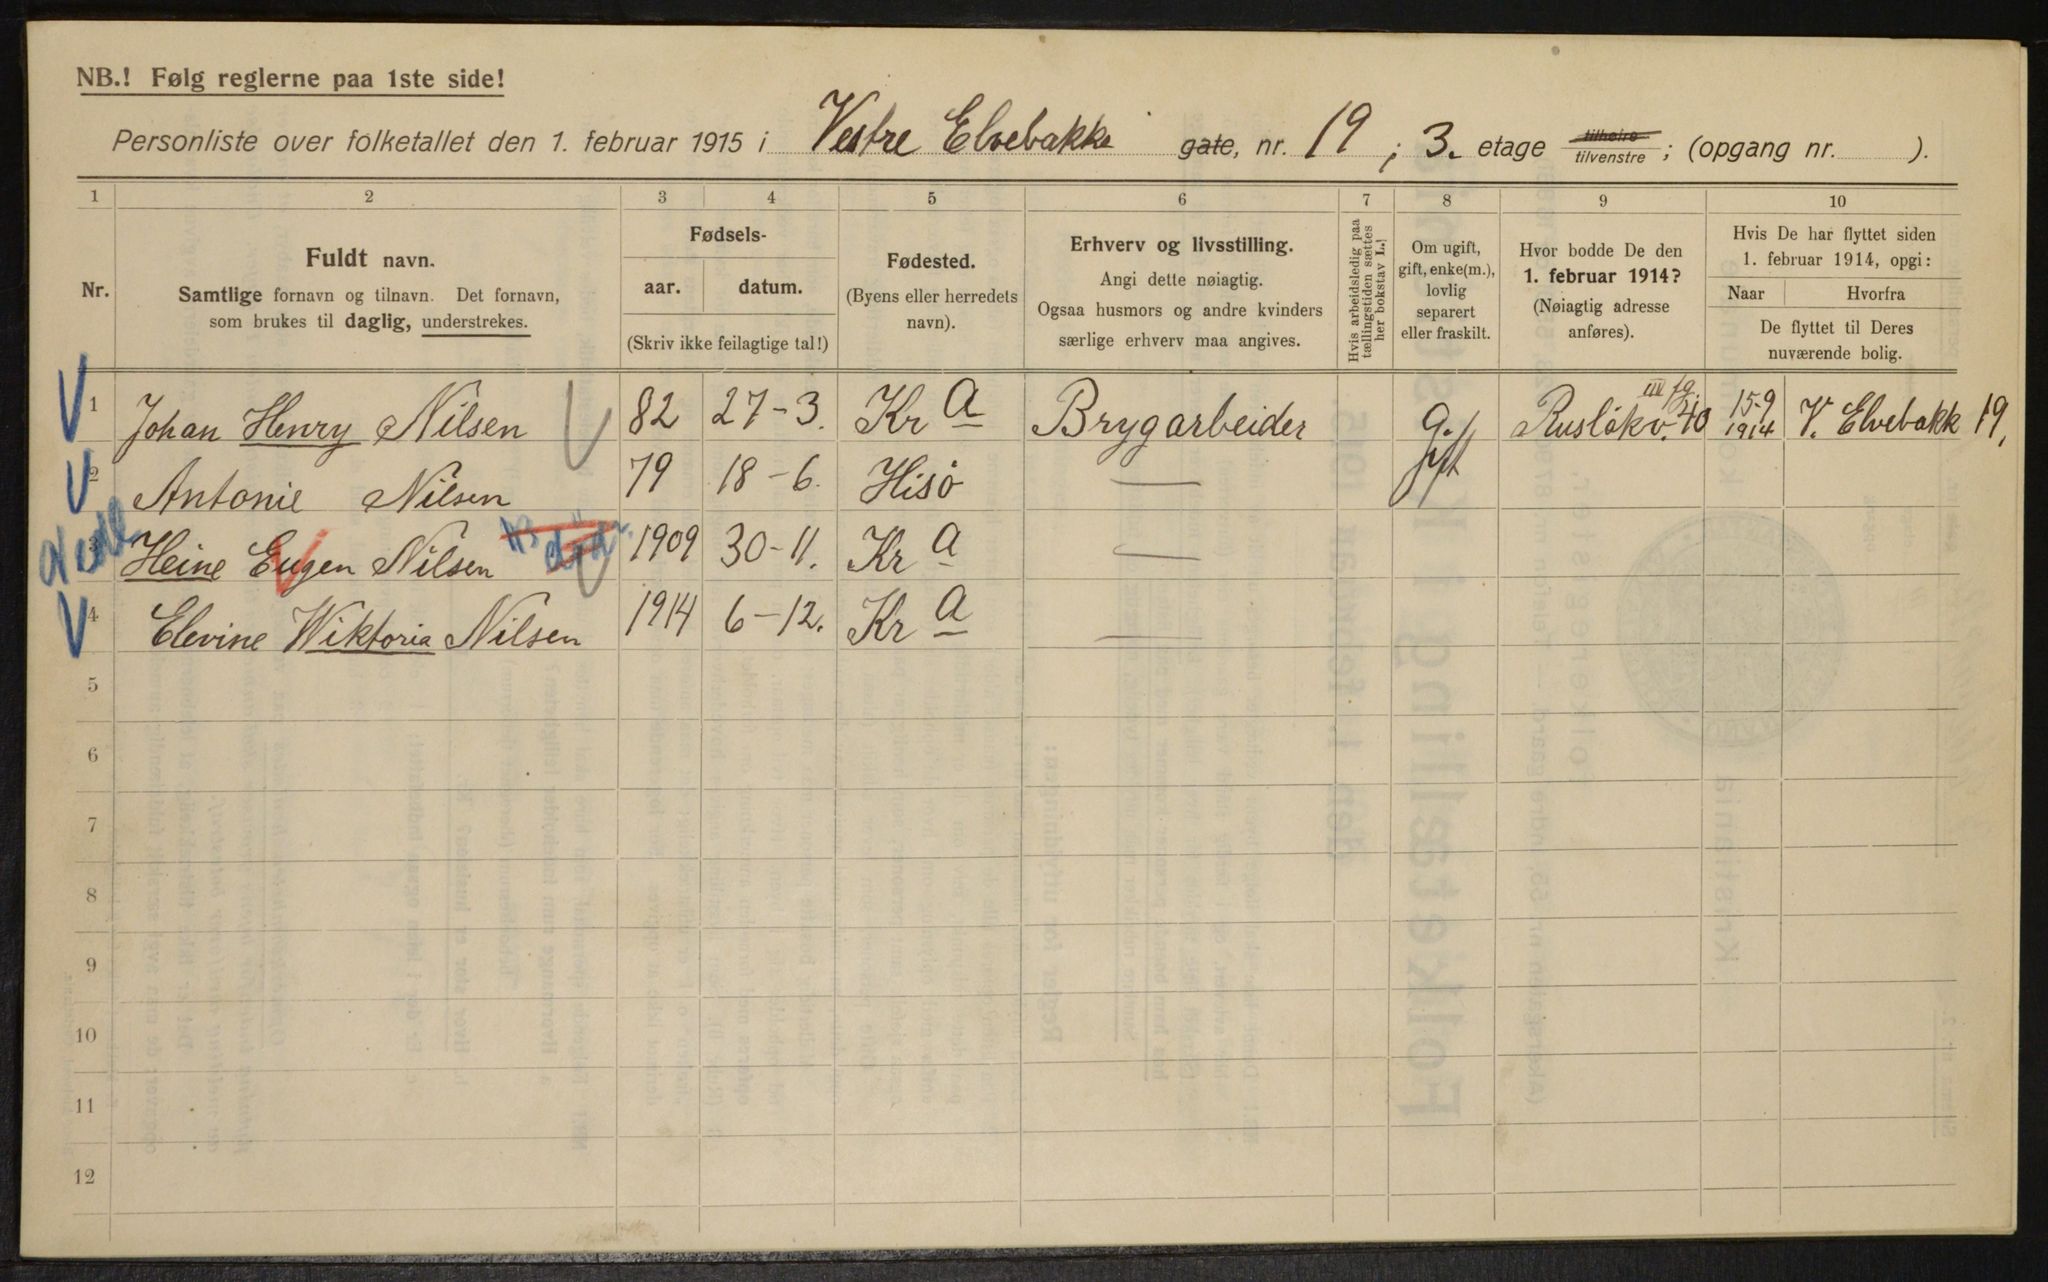 NB.! Følg reglerne paa 1ste side!
Personliste over folketallet den 1. februar 1915 i Vestre Elvebakke gate, nr. 19 ; 3. etage tilhøire tilvenstre ; (opgang nr. ).
1 2 3 4 5 6 7 8 9 10
Nr.
Fuldt navn.
Samtlige fornavn og tilnavn. Det fornavn,
som brukes til daglig, understrekes.
Fødsels-
aar. datum.
(Skriv ikke feilagtige tal!)
Fødested.
(Byens eller herredets
navn).
Erhverv og livsstilling.
Angi dette nøiagtig.
Ogsaa husmors og andre kvinders
særlige erhverv maa angives.
Hvis arbeidsledig paa
tællingstiden sættes
her bokstav L.
Om ugift,
gift, enke(m.),
lovlig
separert
eller fraskilt.
Hvor bodde De den
1. februar 1914?
(Nøiagtig adresse
anføres).
Hvis De har flyttet siden
1. februar 1914, opgi:
Naar Hvorfra
De flyttet til Deres
nuværende bolig.
1 Johan Henry Nilsen 82 27-3. Kr a Brygarbeider g. Rusløkv. 40 III 15-9 1914 V. Elvebakk 19,
2 Antonie Nilsen 79 18-6. Hisö — gift
3 Heine Eugen Nilsen 1909 30-11. Kr a —
4 Elevine Wiktoria Nilsen 1914 6-12. Kr a —
5
6
7
8
9
10
11
12